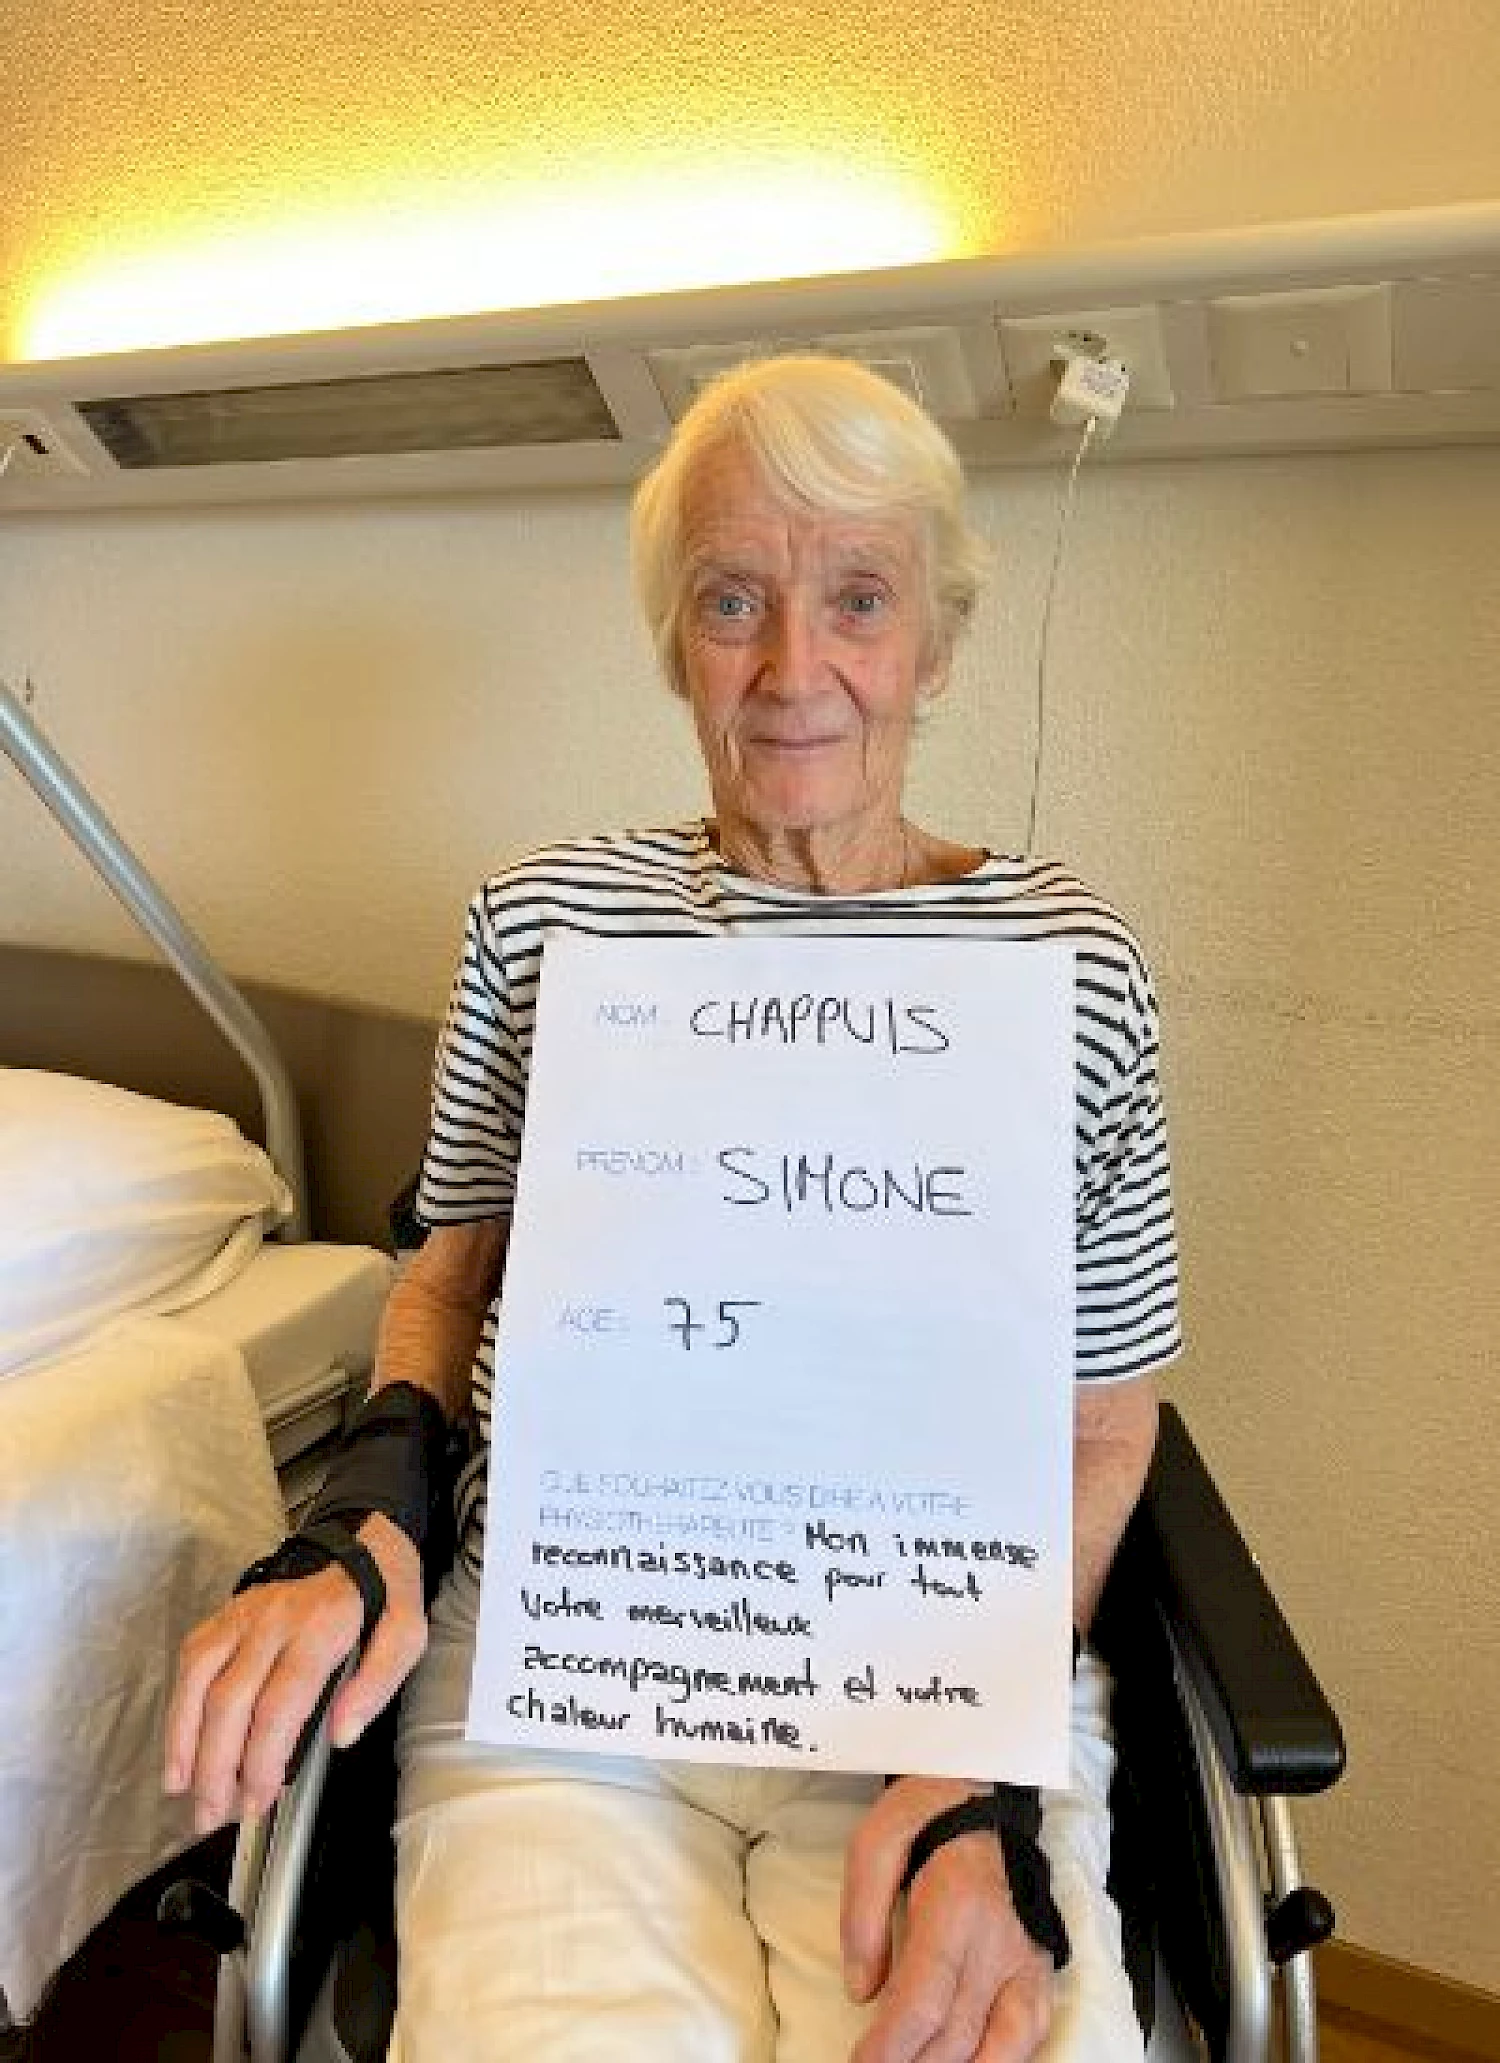 NOM : CHAPPUIS
PRENOM : SIMONE
AGE : 75
QUE SOUHAITEZ-VOUS DIRE A VOTRE
PHYSIOTHERAPEUTE ? Mon immense
reconnaissance pour tout
votre merveilleux
accompagnement et votre
chaleur humaine.